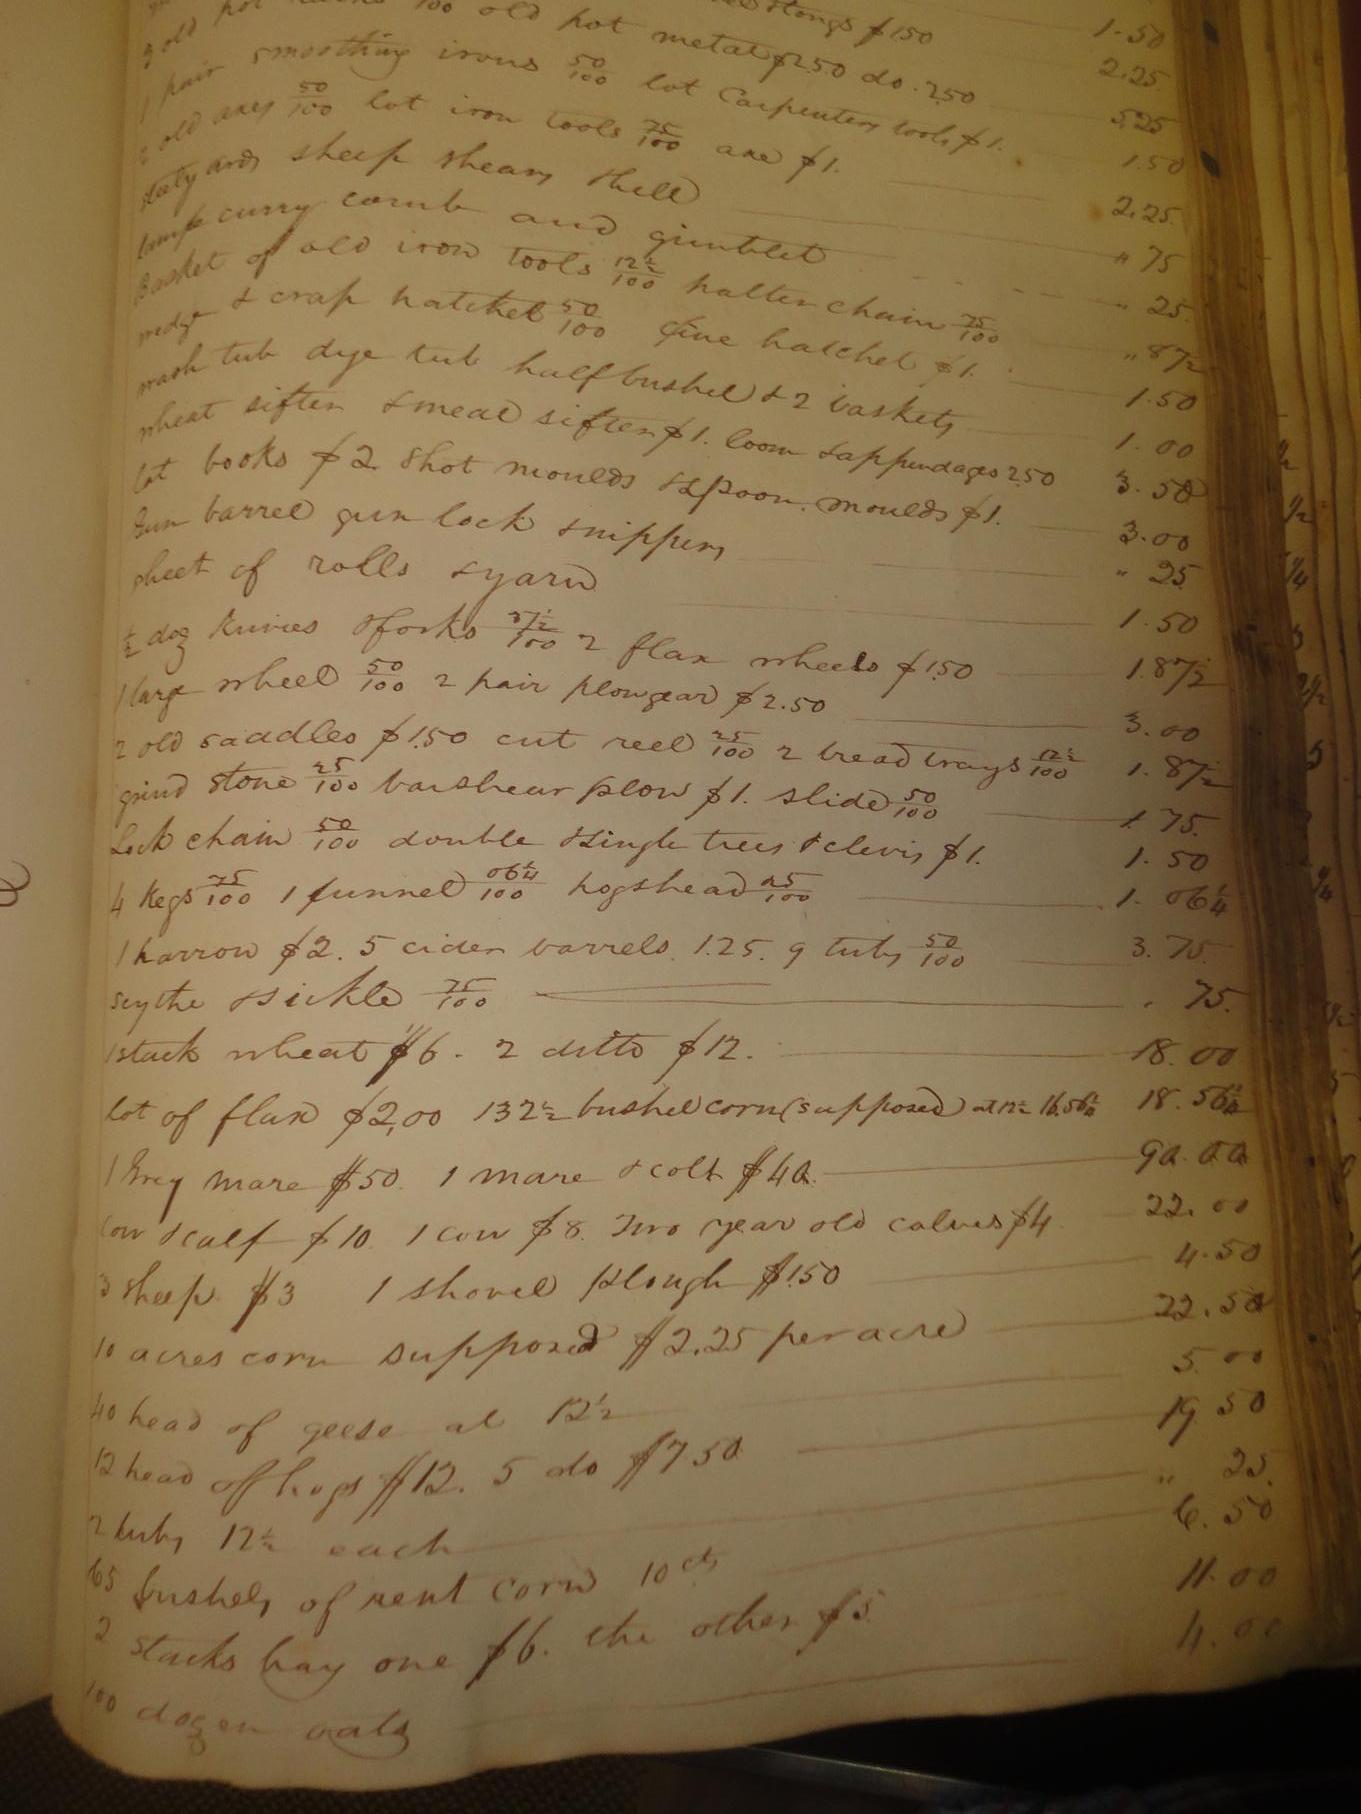 tongs $1.50 1.50
3 old pot racks 100 old pot metal $2.50 do. 2.50 2.25
1 pair smoothing irons 50/100 lot Carpenters tools $1. 5.25
2 old axes 50/100 lot iron tools 75/100 axe $1. 1.50
steelyards sheep shears & bell 2.25
curry comb and gimblet " 75
Basket of old iron tools 12½/100 halter chain 75/100 " 25
wedge & crap hatchel 50/100 fine hatchel $1. " 87½
wash tub dye tub half bushel & 2 baskets 1.50
wheat sifter & meal sifter $1. loom & appendages 2.50 1.00
lot books $2. Shot moulds & spoon moulds $1. 3.50
Gun barrel gun lock & nippers 3.00
sheet of rolls & yarn " 25
½ doz knives & forks 37½/100 2 flax wheels $1.50 1.50
1 large wheel 50/100 2 pair plowgear $2.50 1.87½
2 old saddles $1.50 cut reel 25/100 2 bread trays 12½/100 3.00
grind stone 25/100 barshear plow $1. slide 50/100 1.87½
Lock chain 50/100 double & single trees & clevis $1. 1.75
4 kegs 75/100 1 funnel 06¼/100 hogshead 25/100 1.50
1.06¼
1 harrow $2. 5 cider barrels. 1.25. 9 tubs 50/100 3.75
scythe & sickle 75/100 . 75.
1 stack wheat $6. 2 ditto $12. 18.00
lot of flax $2,00 132½ bushel corn (supposed) at 12½ 16.56¼ 18.56¼
1 Grey mare $50. 1 mare & colt $40. 90.00
Cow & calf $10. 1 cow $8. Two year old calves $4 22.00
3 sheep $3 1 shovel plough $1.50 4.50
10 acres corn supposed $2.25 per acre 22.50
40 head of geese at 12½ 5.00
12 head of hogs $12. 5 do $7.50 19 50
2 tubs 12½ each " 25.
65 bushels of rent corn 10 cts 6.50
2 stacks hay one $6. the other $5 11.00
100 dozen oats 4.00